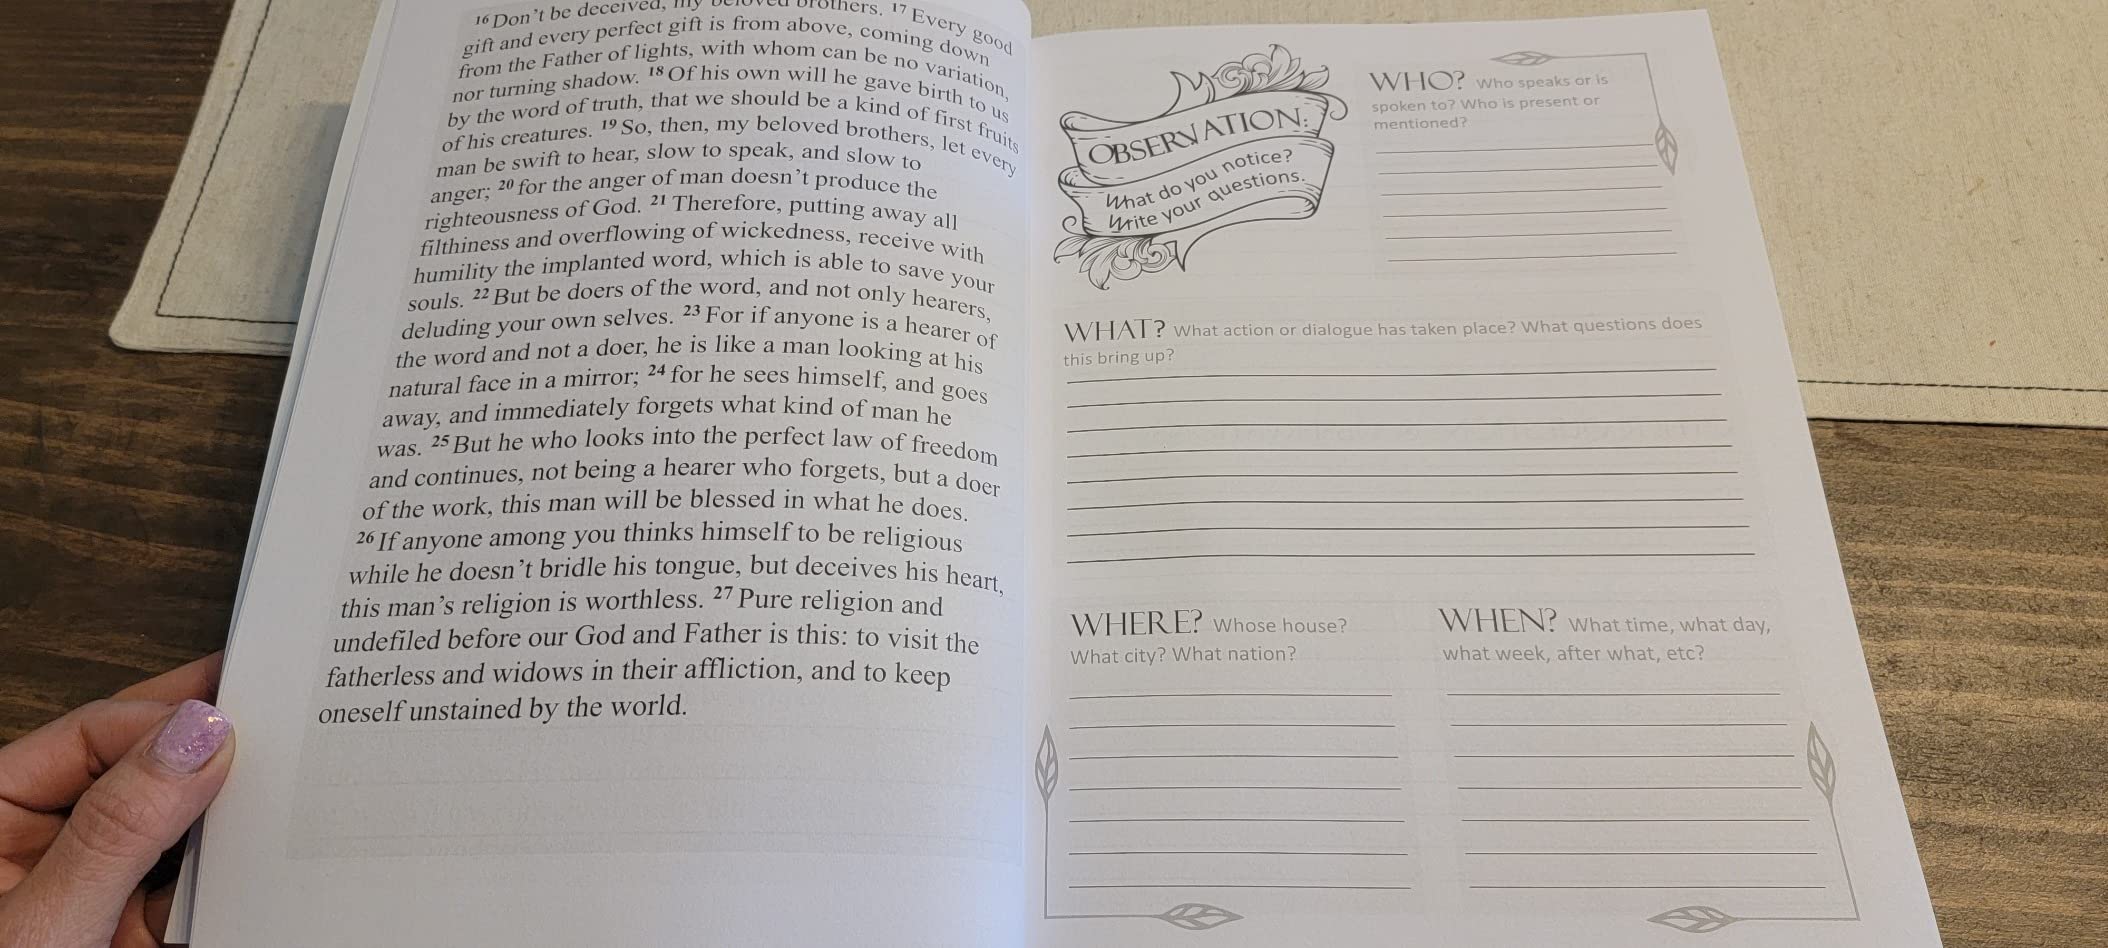 16 Don't be deceived, my beloved brothers. 17 Every good
gift and every perfect gift is from above, coming down
from the Father of lights, with whom can be no variation,
nor turning shadow. 18 Of his own will he gave birth to us
by the word of truth, that we should be a kind of first fruits
of his creatures. 19 So, then, my beloved brothers, let every
man be swift to hear, slow to speak, and slow to
anger; 20 for the anger of man doesn't produce the
righteousness of God. 21 Therefore, putting away all
filthiness and overflowing of wickedness, receive with
humility the implanted word, which is able to save your
souls. 22 But be doers of the word, and not only hearers,
deluding your own selves. 23 For if anyone is a hearer of
the word and not a doer, he is like a man looking at his
natural face in a mirror; 24 for he sees himself, and goes
away, and immediately forgets what kind of man he
was. 25 But he who looks into the perfect law of freedom
and continues, not being a hearer who forgets, but a doer
of the work, this man will be blessed in what he does.
26 If anyone among you thinks himself to be religious
while he doesn't bridle his tongue, but deceives his heart,
this man's religion is worthless. 27 Pure religion and
undefiled before our God and Father is this: to visit the
fatherless and widows in their affliction, and to keep
oneself unstained by the world.
OBSERVATION:
What do you notice?
Write your questions.
WHO? Who speaks or is
spoken to? Who is present or
mentioned?
WHAT? What action or dialogue has taken place? What questions does
this bring up?
WHERE? Whose house?
What city? What nation?
WHEN? What time, what day,
what week, after what, etc?